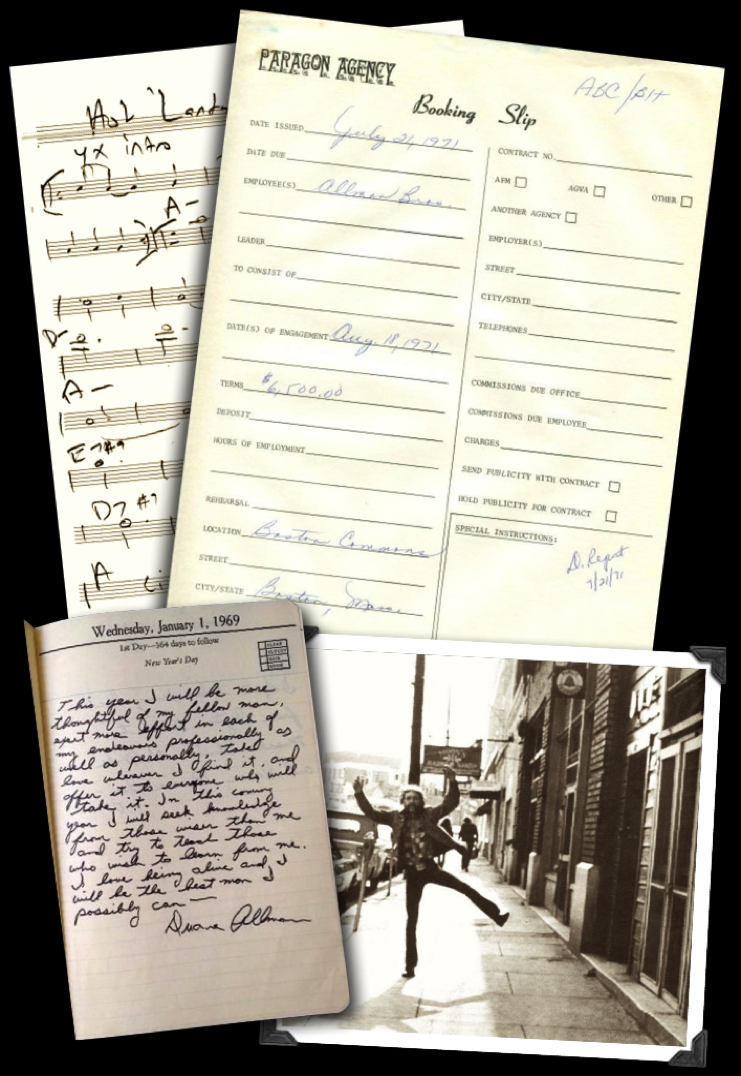 Hot 'Lanta
4x intro
A-
D-
A-
E7#9
D7 #9
A
PARAGON AGENCY
ABC/BIT
Booking Slip
DATE ISSUED July 21, 1971
DATE DUE
EMPLOYEE(S) Allman Bros.
LEADER
TO CONSIST OF
DATE(S) OF ENGAGEMENT Aug. 18, 1971
TERMS $6,500.00
DEPOSIT
HOURS OF EMPLOYMENT
REHEARSAL
LOCATION Boston Commons
STREET
CITY/STATE Boston, Mass.
CONTRACT NO.
AFM AGVA OTHER
ANOTHER AGENCY
EMPLOYER(S)
STREET
CITY/STATE
TELEPHONES
COMMISSIONS DUE OFFICE
COMMISSIONS DUE EMPLOYEE
CHARGES
SEND PUBLICITY WITH CONTRACT
HOLD PUBLICITY FOR CONTRACT
SPECIAL INSTRUCTIONS:
7/21/71
Wednesday, January 1, 1969
1st Day—364 days to follow
New Year's Day
This year I will be more
thoughtful of my fellow man,
exert more effort in each of
my endeavors professionally as
well as personally. Take
love wherever I find it, and
offer it to everyone who will
take it. In this coming
year I will seek knowledge
from those wiser than me
and try to teach those
who wish to learn from me.
I love being alive and I
will be the best man I
possibly can —
Duane Allman